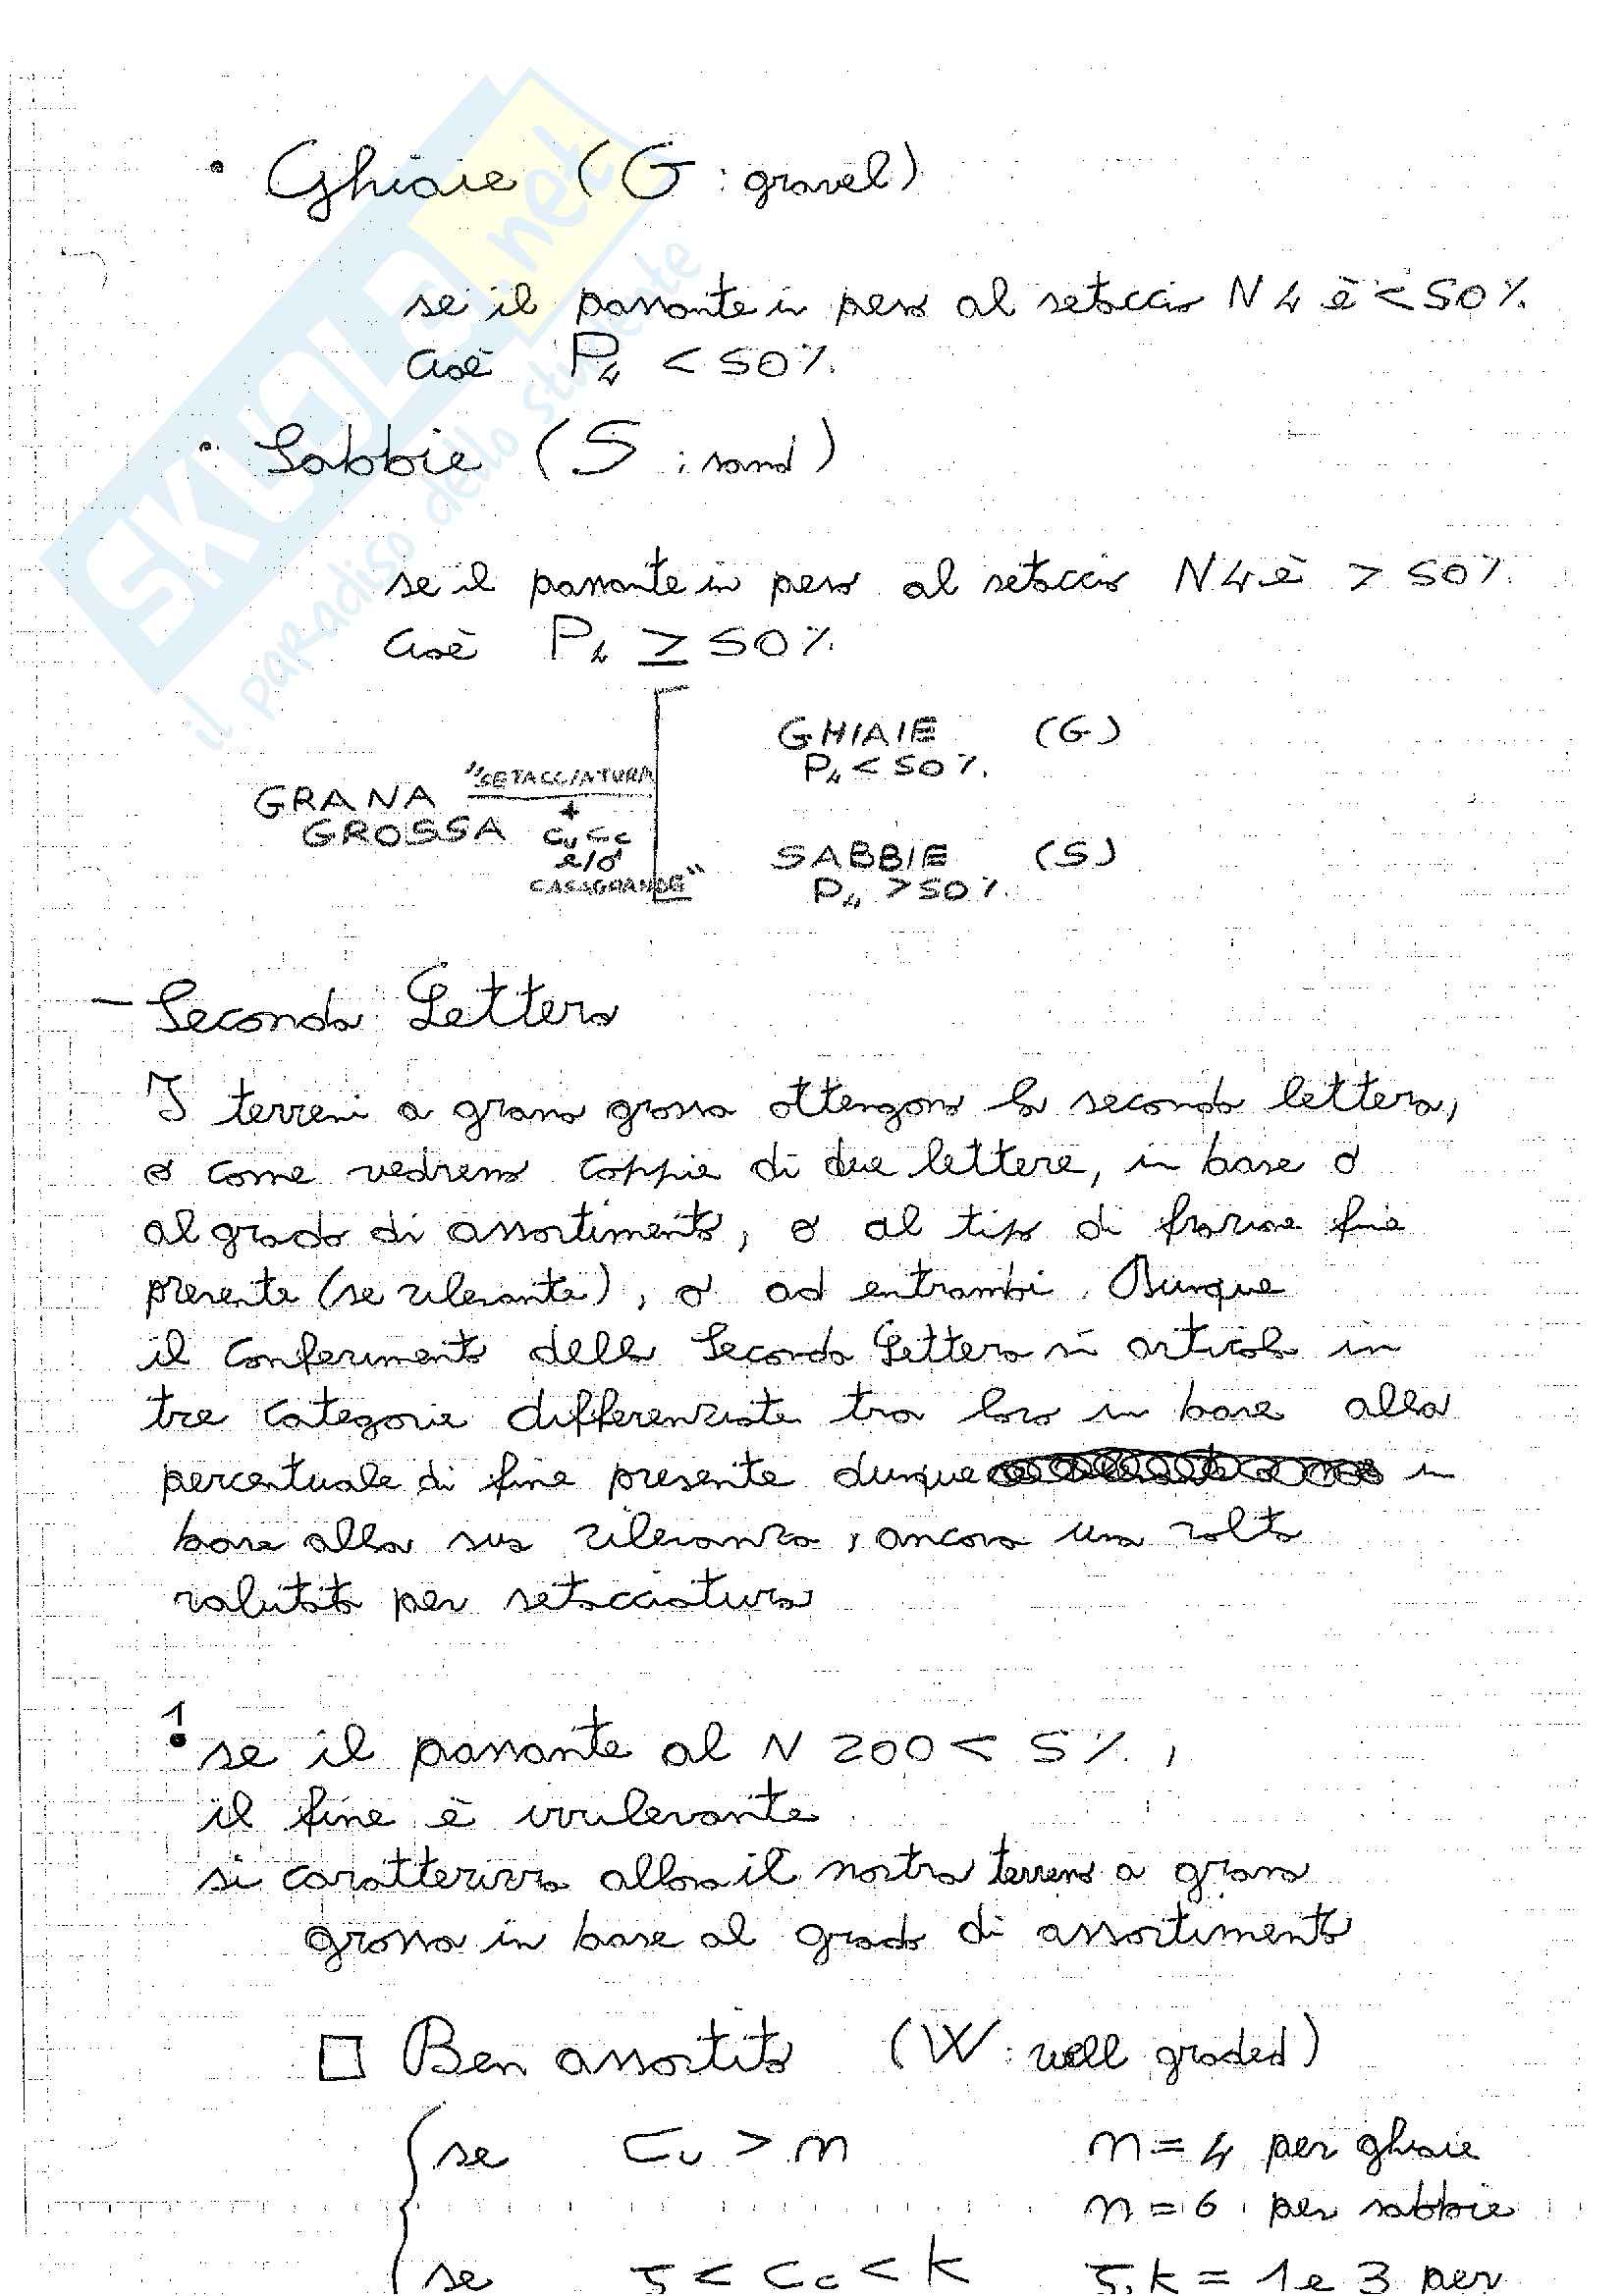 • Ghiaie (G : gravel)
se il passante in peso al setaccio N 4 è < 50%
cioè P4 < 50%.
• Sabbie (S : sand)
se il passante in peso al setaccio N4 è > 50%
cioè P4 ≥ 50%.
GHIAIE (G)
P4 < 50%.
GRANA "SETACCIATURA
GROSSA +
Cu Cc
e/o
CASAGRANDE"
SABBIE (S)
P4 > 50%.
- Seconda Lettera
I terreni a grana grossa ottengono la seconda lettera,
o come vedremo coppie di due lettere, in base o
al grado di assortimento, o al tipo di frazione fine
presente (se rilevante), o ad entrambi. Dunque
il conferimento della Seconda Lettera si articola in
tre categorie differenziate tra loro in base alla
percentuale di fine presente dunque in
base alla sua rilevanza, ancora una volta
valutata per setacciatura
1
• se il passante al N 200 < 5%,
il fine è irrilevante
si caratterizza allora il nostro terreno a grana
grossa in base al grado di assortimento
□ Ben assortito (W : well graded)
se Cu > n n = 4 per ghiaie
n = 6 per sabbie
se < Cc < k k = 1 e 3 per
SKUOLA.net
il paradiso dello studente